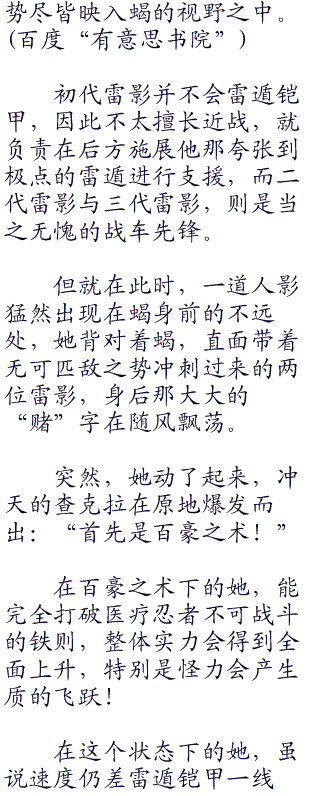 势尽皆映入蝎的视野之中。
(百度“有意思书院”)
初代雷影并不会雷遁铠
甲，因此不太擅长近战，就
负责在后方施展他那夸张到
极点的雷遁进行支援，而二
代雷影与三代雷影，则是当
之无愧的战车先锋。
但就在此时，一道人影
猛然出现在蝎身前的不远
处，她背对着蝎，直面带着
无可匹敌之势冲刺过来的两
位雷影，身后那大大的
“赌”字在随风飘荡。
突然，她动了起来，冲
天的查克拉在原地爆发而
出：“首先是百豪之术！”
在百豪之术下的她，能
完全打破医疗忍者不可战斗
的铁则，整体实力会得到全
面上升，特别是怪力会产生
质的飞跃！
在这个状态下的她，虽
说速度仍差雷遁铠甲一线